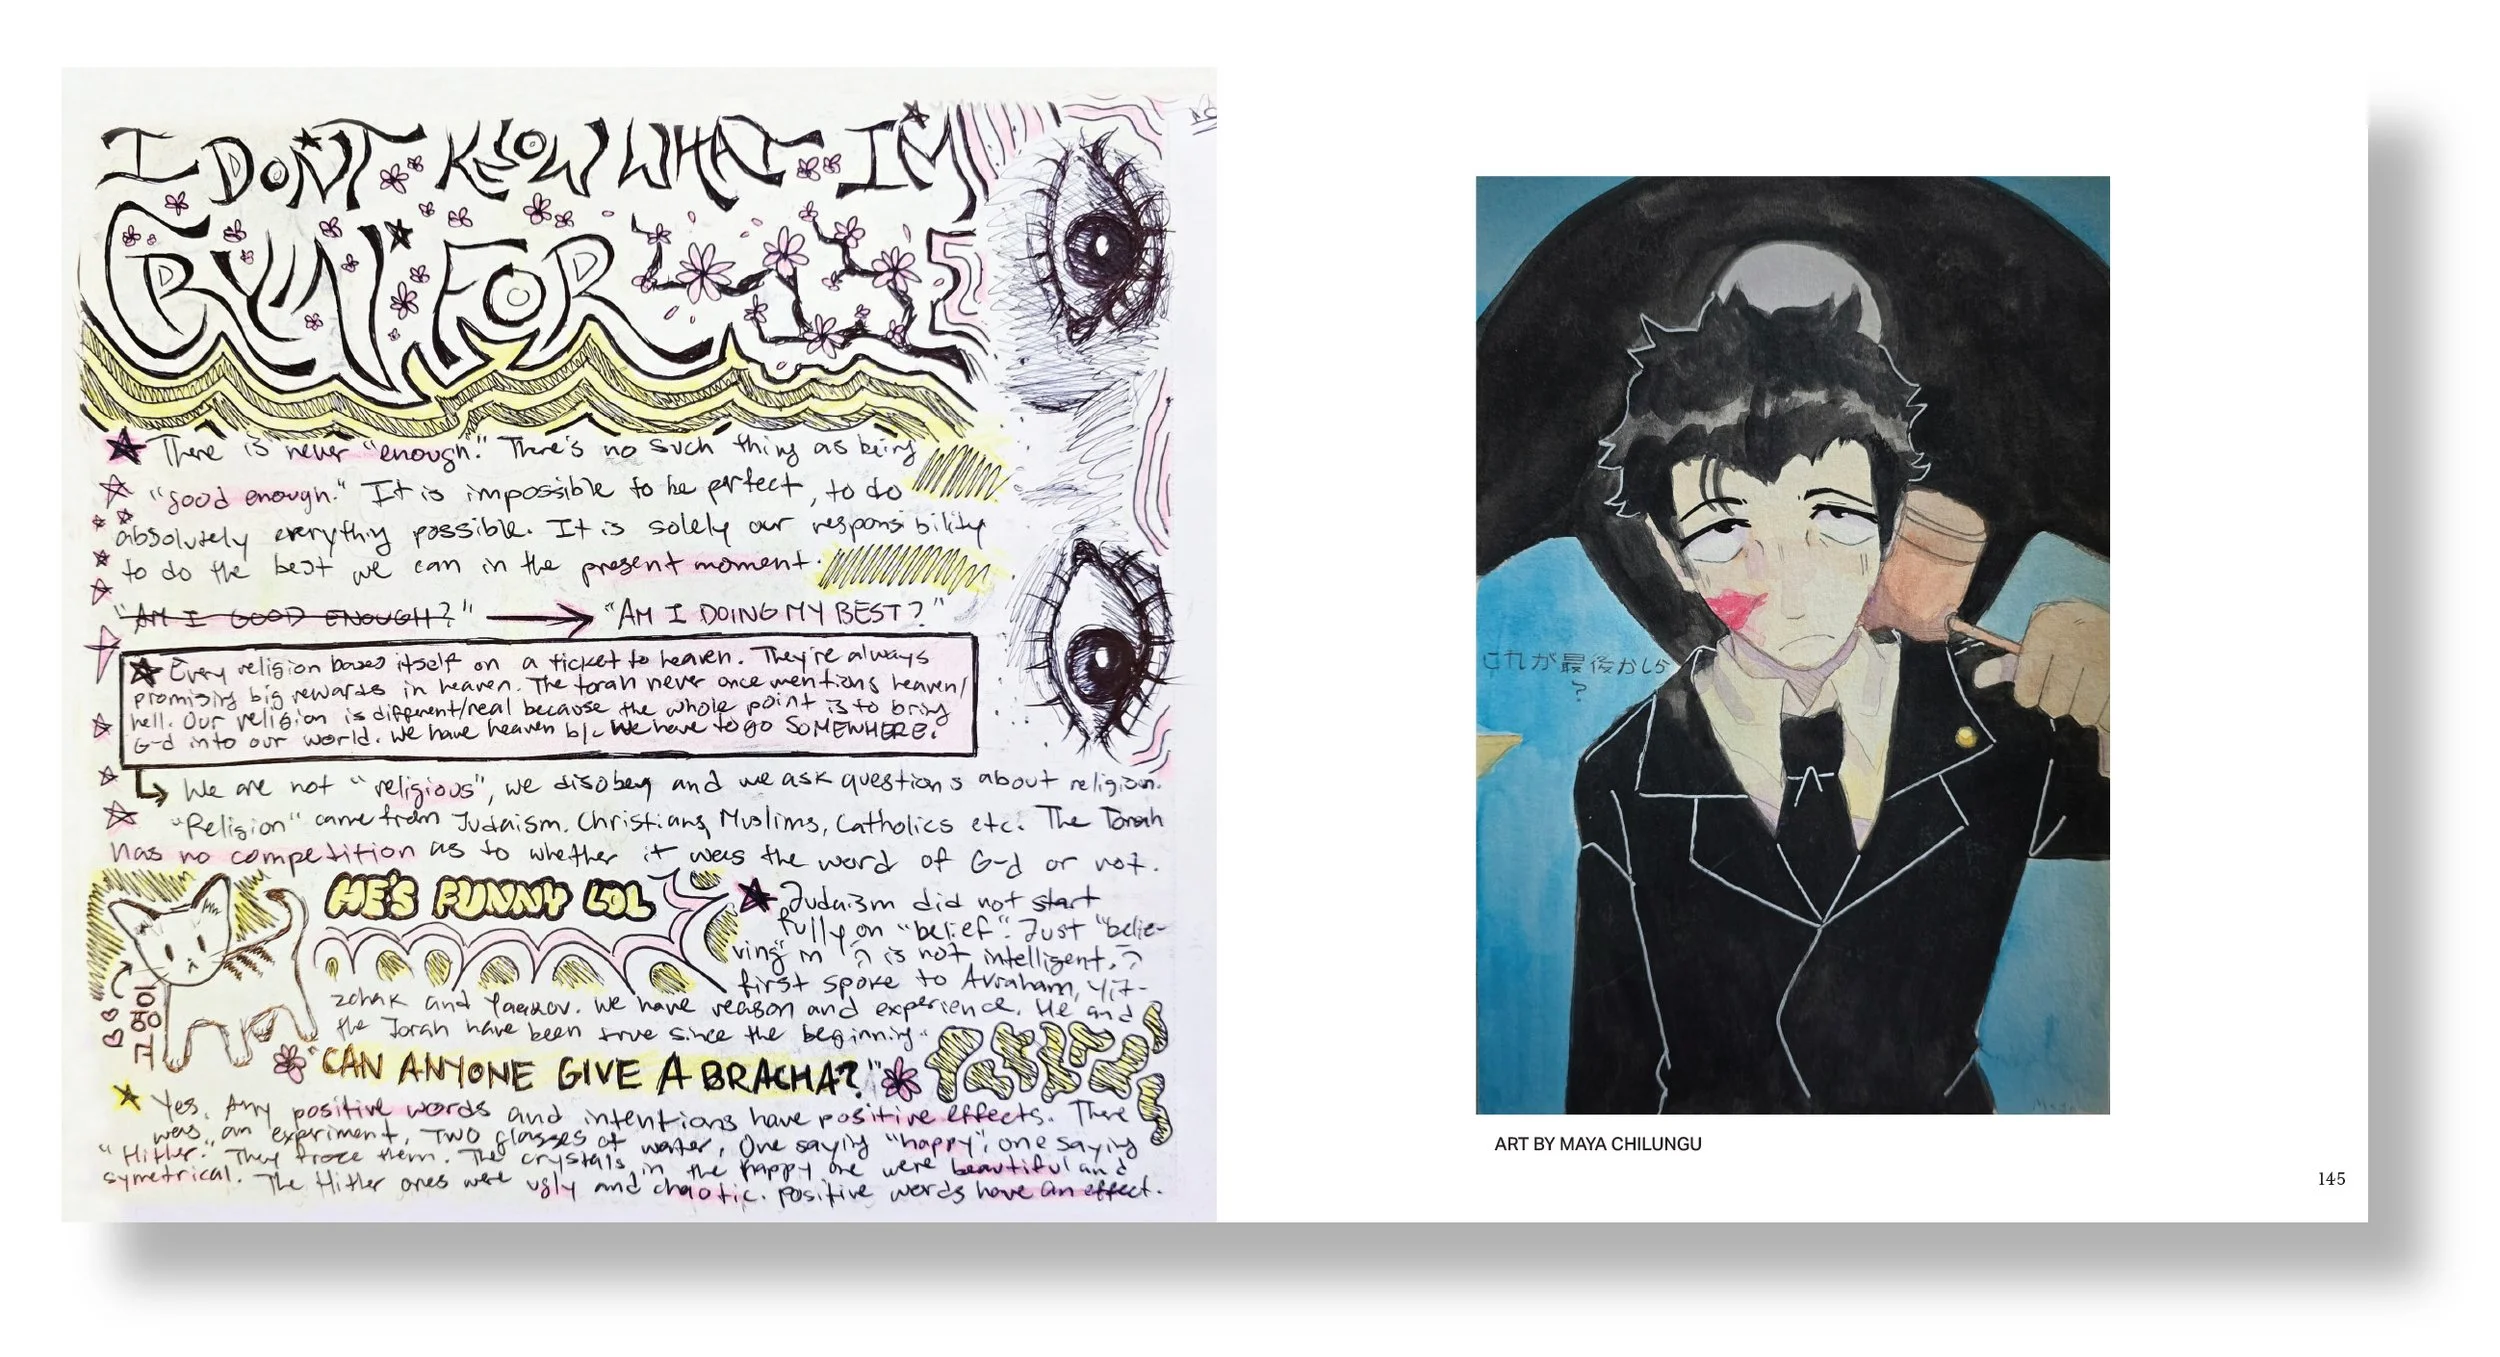 I DON'T KNOW WHAT I'M
CRYIN' FOR
★ There is never "enough." There's no such thing as being
"good enough." It is impossible to be perfect, to do
absolutely everything possible. It is solely our responsibility
to do the best we can in the present moment.
"AM I GOOD ENOUGH?" → "AM I DOING MY BEST?"
★ Every religion bases itself on a ticket to heaven. They're always
promising big rewards in heaven. The torah never once mentions heaven/
hell. Our religion is different/real because the whole point is to bring
G-d into our world. We have heaven b/c we have to go SOMEWHERE.
↳ We are not "religious", we disobey and we ask questions about religion.
"Religion" came from Judaism. Christians, Muslims, Catholics etc. The Torah
has no competition as to whether it was the word of G-d or not.
HE'S FUNNY LOL
고양이
★ Judaism did not start
fully on "belief". Just "belie-
ving" in ה is not intelligent. ה
first spoke to Avraham, Yit-
zchak and Yaakov. We have reason and experience. He and
the Torah have been true since the beginning.
"CAN ANYONE GIVE A BRACHA?"
★ Yes. Any positive words and intentions have positive effects. There
was an experiment. Two glasses of water, One saying "happy", one saying
"Hitler." They froze them. The crystals in the happy one were beautiful and
symetrical. The Hitler ones were ugly and chaotic. positive words have an effect.
これが最後かしら
?
Maya
ART BY MAYA CHILUNGU
145